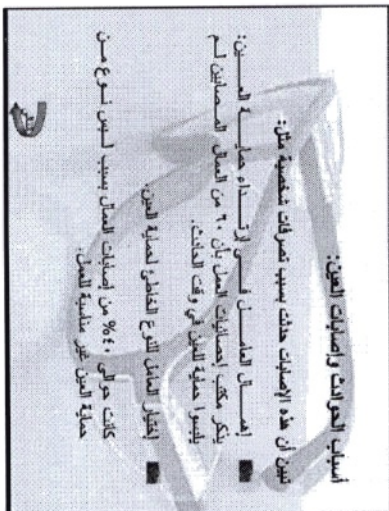 أسباب الحوادث وإصابات العين:
تبين أن هذه الإصابات حدثت بسبب تصرفات شخصية مثل:
إهمال العامل في إرتداء حماية العين:
يذكر مكتب إحصائيات العمل بأن ٦٠ من العمال المصابين لم
يلبسوا حماية للعين في وقت الحادث.
إختيار العامل للنوع الخاطئ لحماية العين.
كانت حوالى ٤٠% من إصابات العمال بسبب لبس نوع من
حماية العين غير مناسبة للعمل.